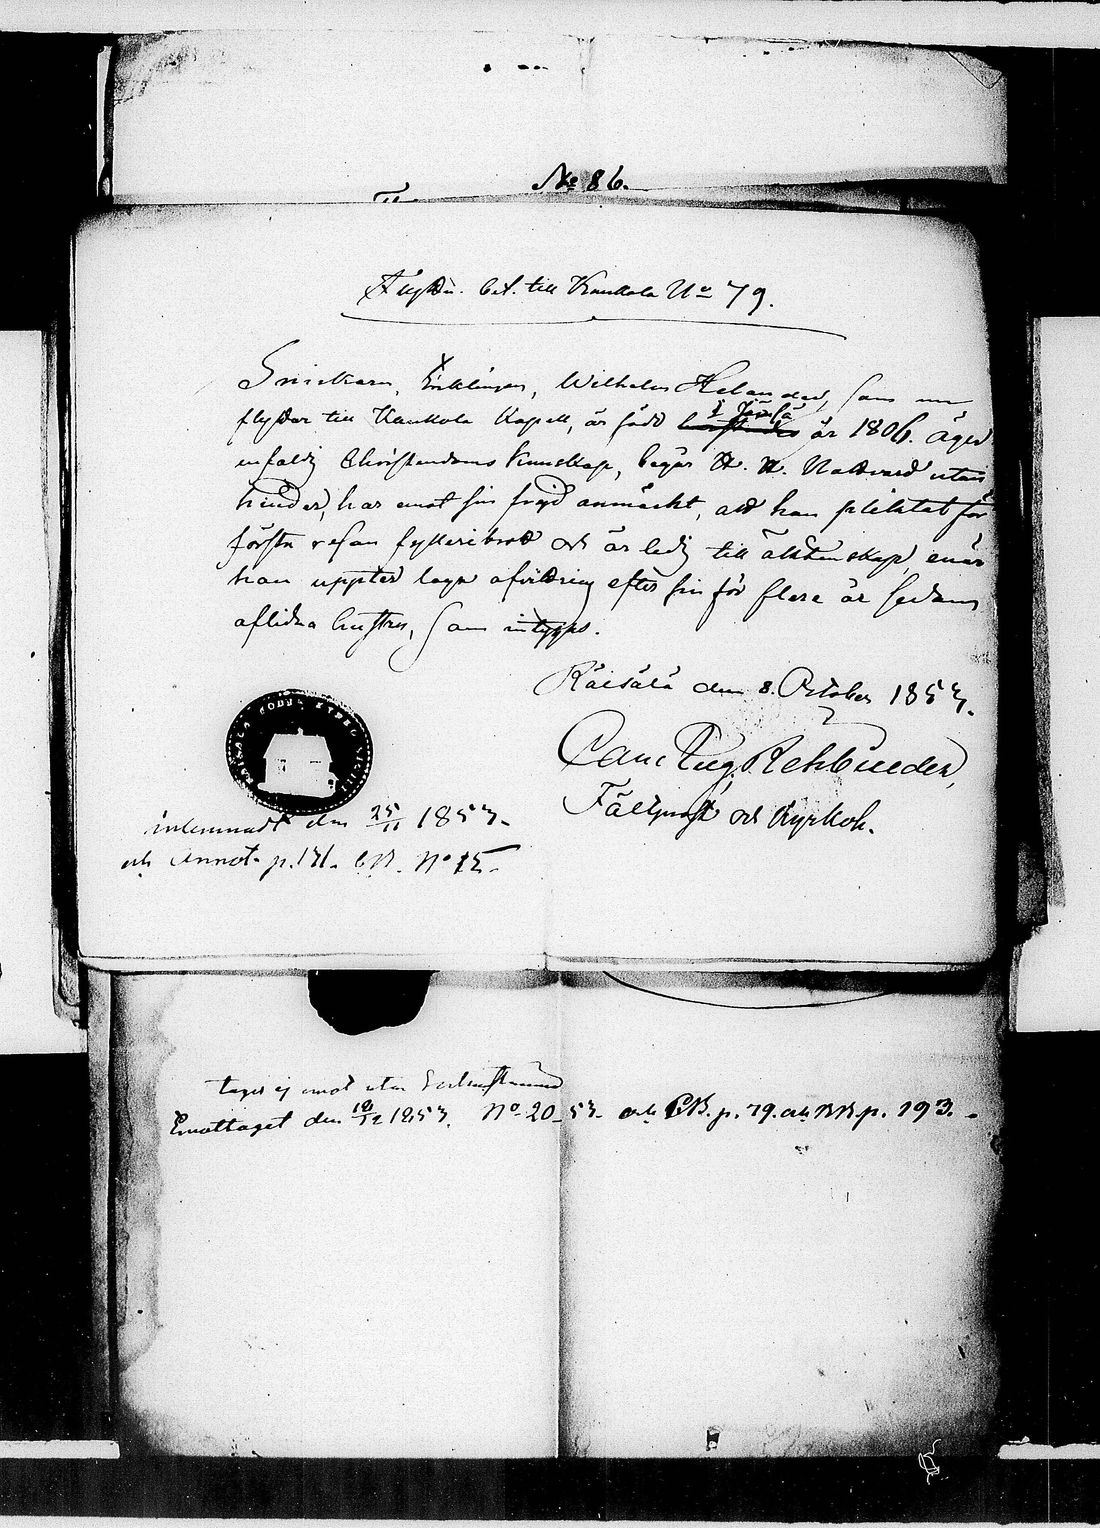 No 86.
Flyttn. bet. till Kaukola No 79.
Snickaren, Enklingen, Wilhelm Helander, som nu
i Jäxfä
flyttar till Kaukola Kapell, är född år 1806. äger
enfaldig Christendoms kunskap, begår H. H. Nattvard utan
hinder, har emot sin frejd anmärkt, att han pliktat för
första resan fylleribrott och är ledig till äktenskap, enär
han uppter laga afvittring efter sin för flere år sedan
aflidna hustru, som intygas.
Räisälä den 8. October 1853.
Carl Aug. Rehbinder,
Fältprost och Kyrkoh.
inlemnadt den 25/11 1853.
och Annot. p. 131. CB. No 15.
tages ej emot utan
Emottaget den 18/12 1853. No 20 53. och CB. p. 79. och BB p. 193.